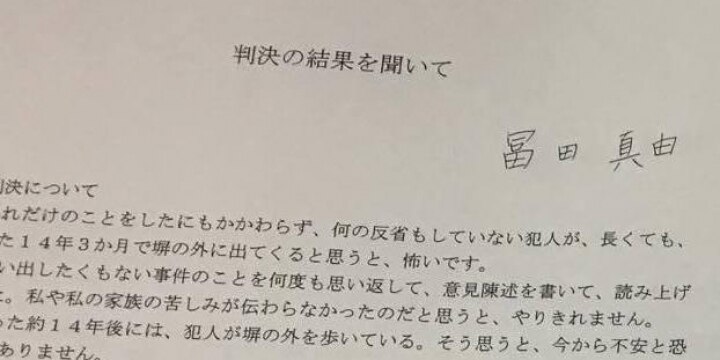 判決の結果を聞いて
冨田 真由
判決について
れだけのことをしたにもかかわらず、何の反省もしていない犯人が、長くても、
た１４年３か月で塀の外に出てくると思うと、怖いです。
い出したくもない事件のことを何度も思い返して、意見陳述を書いて、読み上げ
た。私や私の家族の苦しみが伝わらなかったのだと思うと、やりきれません。
った約１４年後には、犯人が塀の外を歩いている。そう思うと、今から不安と恐
ありません。